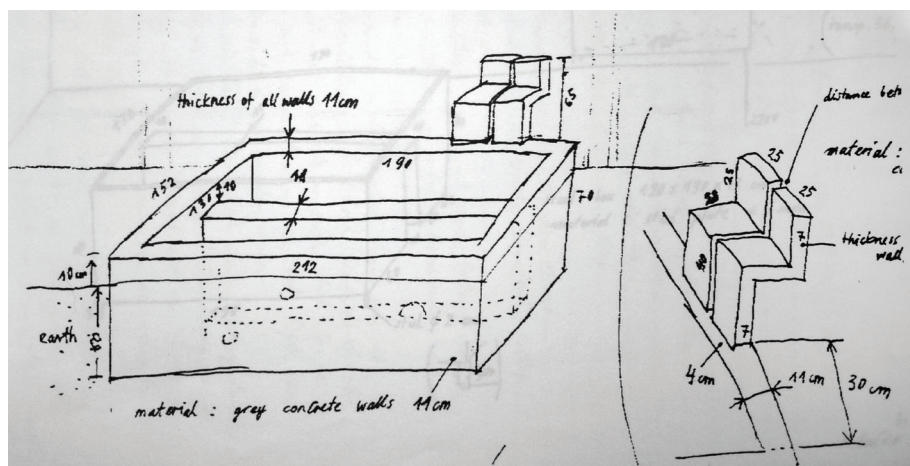 thickness of all walls 11cm
65
152
190
11
130
10
70
10cm
212
earth
material : grey concrete walls 11cm
distance
material :
25
25
25
7
thickness
wall
7
4cm
11cm
30cm